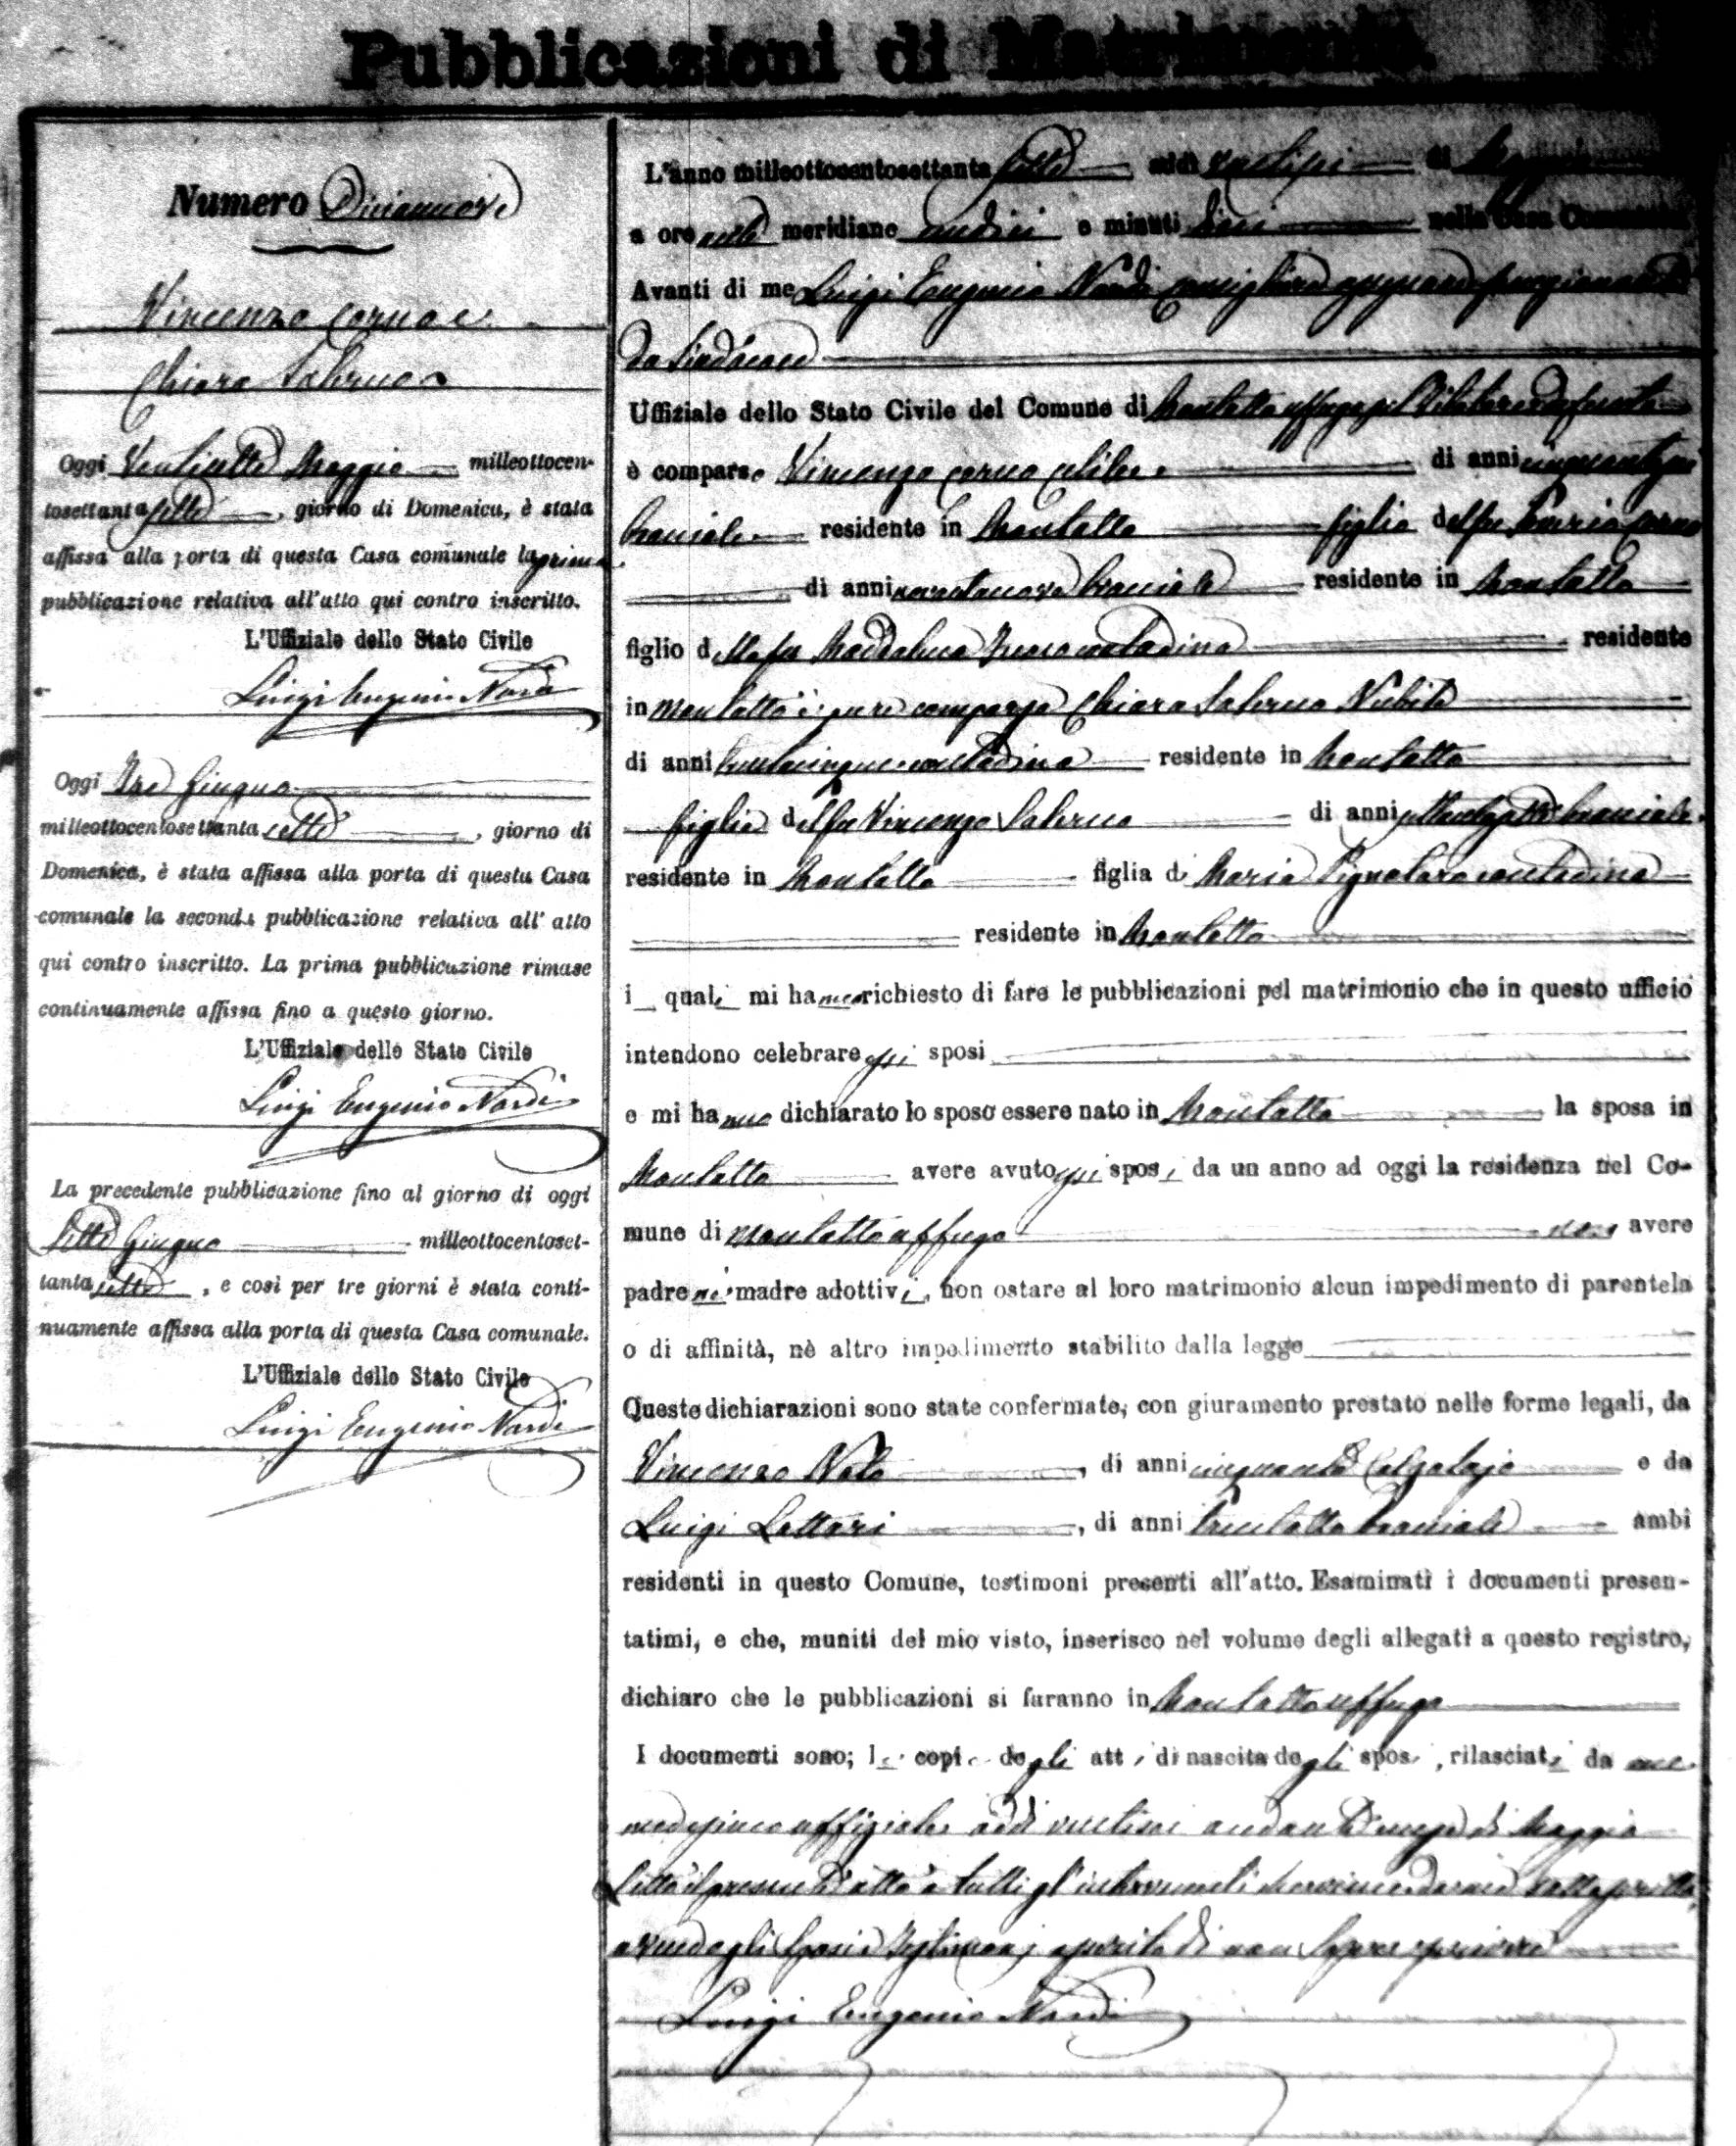 Pubblicazioni di Matrimonio.
Numero Diciannove
Vincenzo Corno e
Chiara Salerno
Oggi Ventisette Maggio milleottocen-
tosettantasette, giorno di Domenica, è stata
affissa alla porta di questa Casa comunale la prima
pubblicazione relativa all'atto qui contro inscritto.
L'Uffiziale dello Stato Civile
Luigi Eugenio Nardi
Oggi Tre Giugno
milleottocentosettanta sette, giorno di
Domenica, è stata affissa alla porta di questa Casa
comunale la seconda pubblicazione relativa all'atto
qui contro inscritto. La prima pubblicazione rimase
continuamente affissa fino a questo giorno.
L'Uffiziale dello Stato Civile
Luigi Eugenio Nardi
La precedente pubblicazione fino al giorno di oggi
Sette Giugno milleottocentoset-
tanta sette, e così per tre giorni è stata conti-
nuamente affissa alla porta di questa Casa comunale.
L'Uffiziale dello Stato Civile
Luigi Eugenio Nardi
L'anno milleottocentosettanta sette addì ventisei di Maggio
a ore anti meridiane undici e minuti dieci nella Casa Comunale
Avanti di me Luigi Eugenio Nardi consigliere funzionante
da Sindaco
Uffiziale dello Stato Civile del Comune di Montalto Uffugo
è comparso Vincenzo Corno celibe di anni
bracciale residente in Montalto figlio del fu Corno
di anni bracciale residente in Montalto
figlio della fu Maddalena contadina residente
in Montalto è pure comparsa Chiara Salerno Nubile
di anni trentacinque contadina residente in Montalto
figlia del fu Vincenzo Salerno di anni bracciale
residente in Montalto figlia di Maria Pignataro contadina
residente in Montalto
i quali mi hanno richiesto di fare le pubblicazioni pel matrimonio che in questo ufficio
intendono celebrare essi sposi
e mi hanno dichiarato lo sposo essere nato in Montalto la sposa in
Montalto avere avuto essi sposi da un anno ad oggi la residenza nel Co-
mune di Montalto Uffugo non avere
padre nè madre adottivi, non ostare al loro matrimonio alcun impedimento di parentela
o di affinità, nè altro impedimento stabilito dalla legge
Queste dichiarazioni sono state confermate, con giuramento prestato nelle forme legali, da
Vincenzo Noto, di anni cinquanta Calzolajo e da
Luigi Lattari, di anni trentotto bracciale ambi
residenti in questo Comune, testimoni presenti all'atto. Esaminati i documenti presen-
tatimi, e che, muniti del mio visto, inserisco nel volume degli allegati a questo registro,
dichiaro che le pubblicazioni si faranno in Montalto Uffugo
I documenti sono; le copie degli atti di nascita degli sposi, rilasciati da me
medesimo uffiziale addì ventisei andante mese di Maggio
Letto il presente atto a tutti gl'intervenuti
avendo gli sposi e testimoni asserito di non sapere scrivere
Luigi Eugenio Nardi